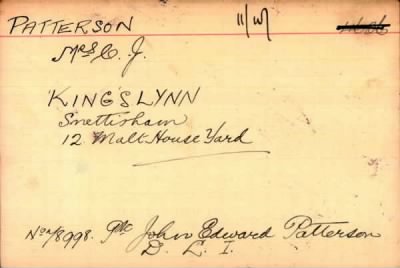 PATTERSON 11/17
Mrs C. J.
KING'S LYNN
Snettisham
12 Malt House Yard
Pte John Edward Patterson
D. L. I.